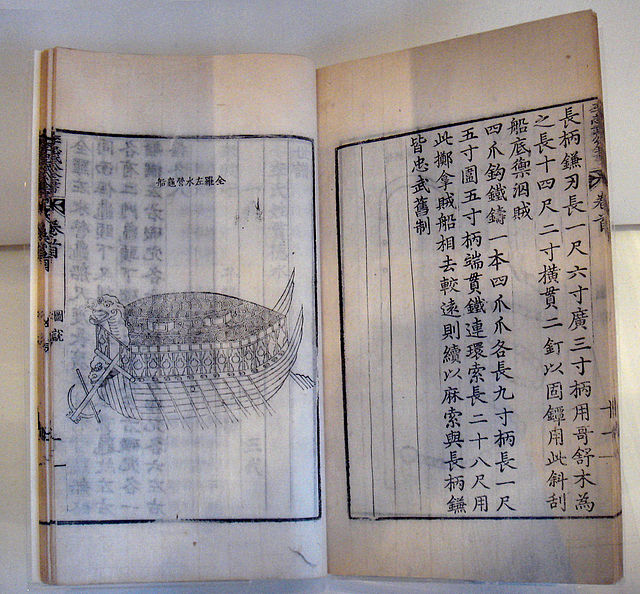 卷首
長柄鎌刃長一尺六寸廣三寸柄用哥舒木為
之長十四尺二寸橫貫二釘以固鐔用此斜刮
船底禦洇賊
四爪鉤鐵鑄一本四爪爪各長九寸柄長一尺
五寸圍五寸柄端貫鐵連環索長二十八尺用
此擲拿賊船相去較遠則續以麻索與長柄鎌
皆忠武舊制
全羅左水營龜船
卷首
圖說